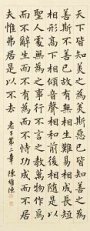 天下皆知美之為美斯惡已皆知善之為
善斯不善已故有無相生難易相成長短
相形高下相傾音聲相和前後相隨是以
聖人處無為之事行不言之教萬物作焉
而不辭生而不有為而不恃功成而不居
夫惟弗居是以不去 老子第二章 陳